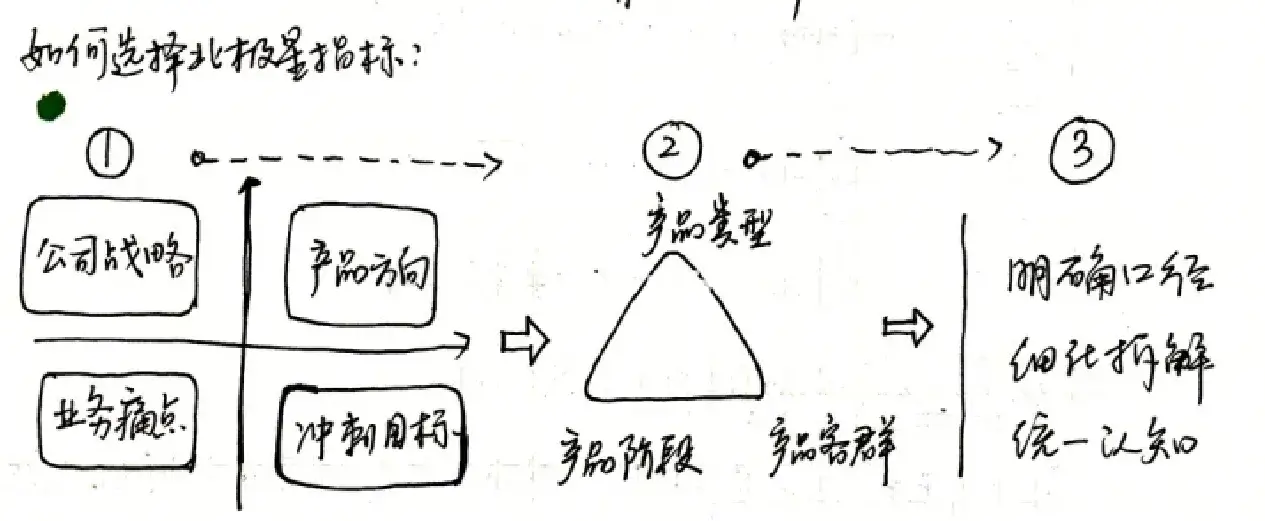 如何选择北极星指标:
① ② ③
公司战略 产品方向
业务痛点 冲刺目标
产品类型
产品阶段 产品客群
明确口径
细化拆解
统一认知